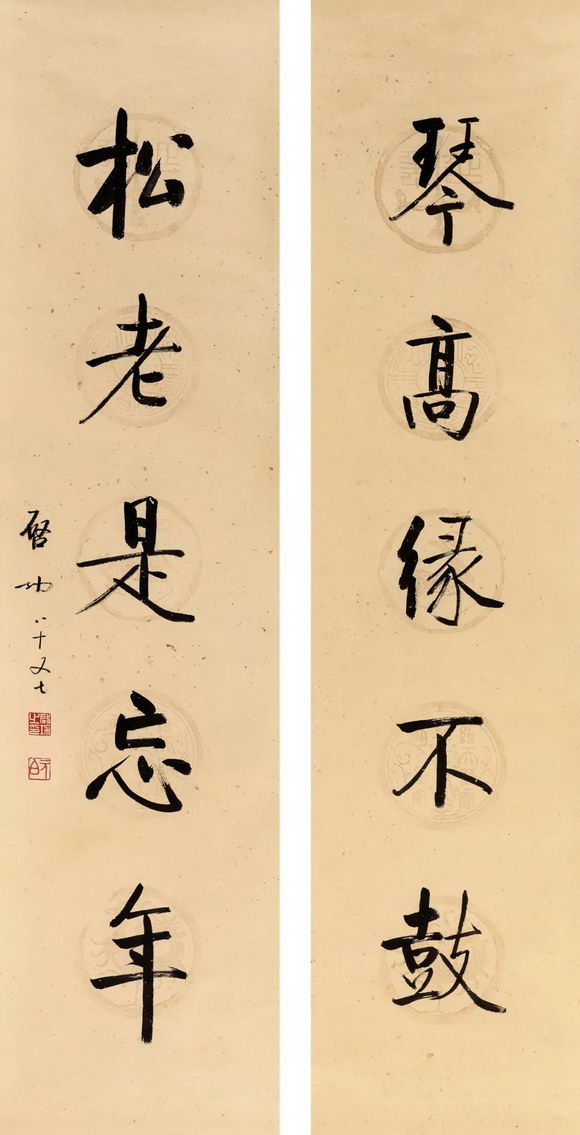 琴高緣不鼓
松老是忘年
啓功八十又七